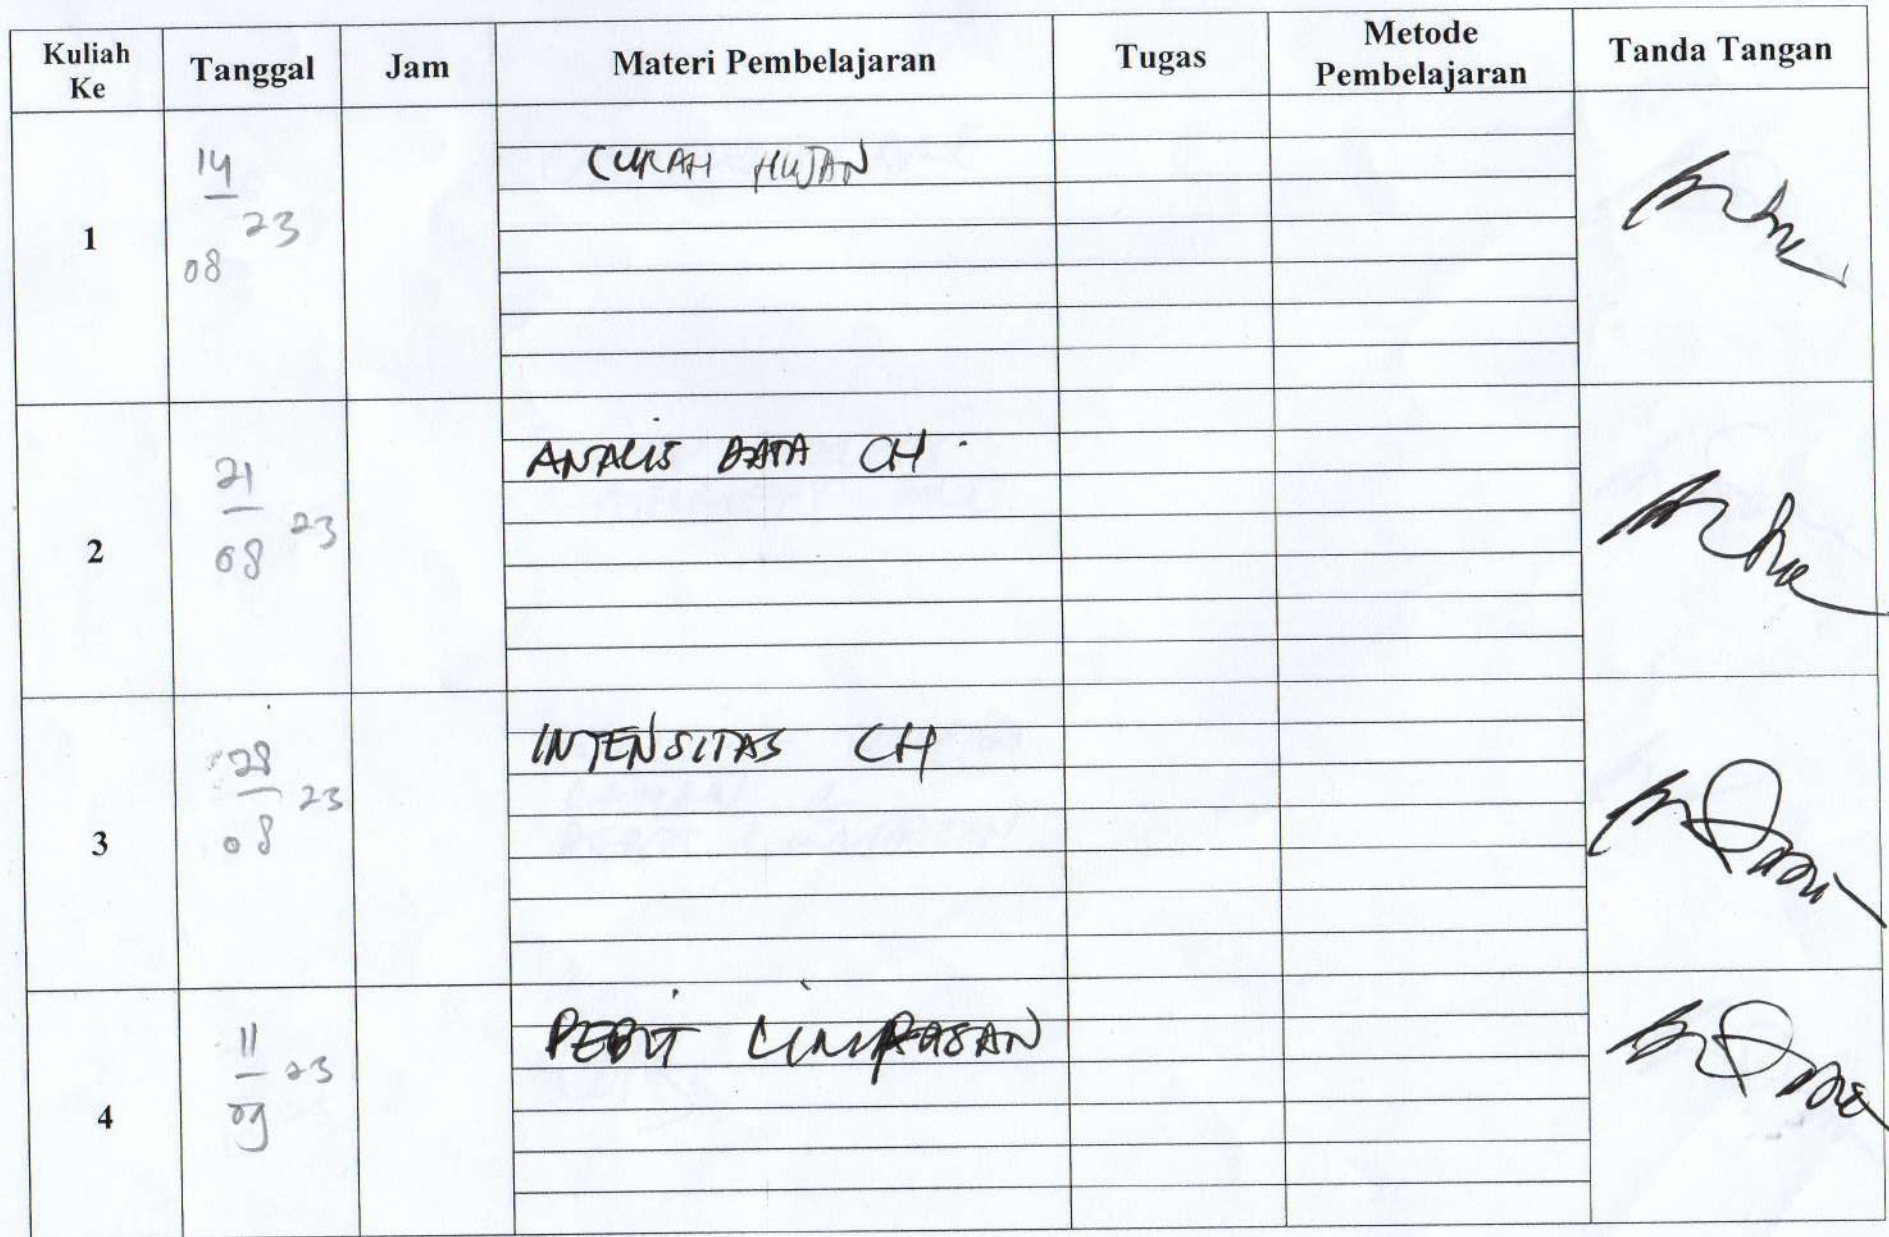 Kuliah Ke Tanggal Jam Materi Pembelajaran Tugas Metode Pembelajaran Tanda Tangan
1 14/08 23 CURAH HUJAN
2 21/08 23 ANALIS DATA CH
3 28/08 23 INTENSITAS CH
4 11/09 23 DEBIT LIMPASAN